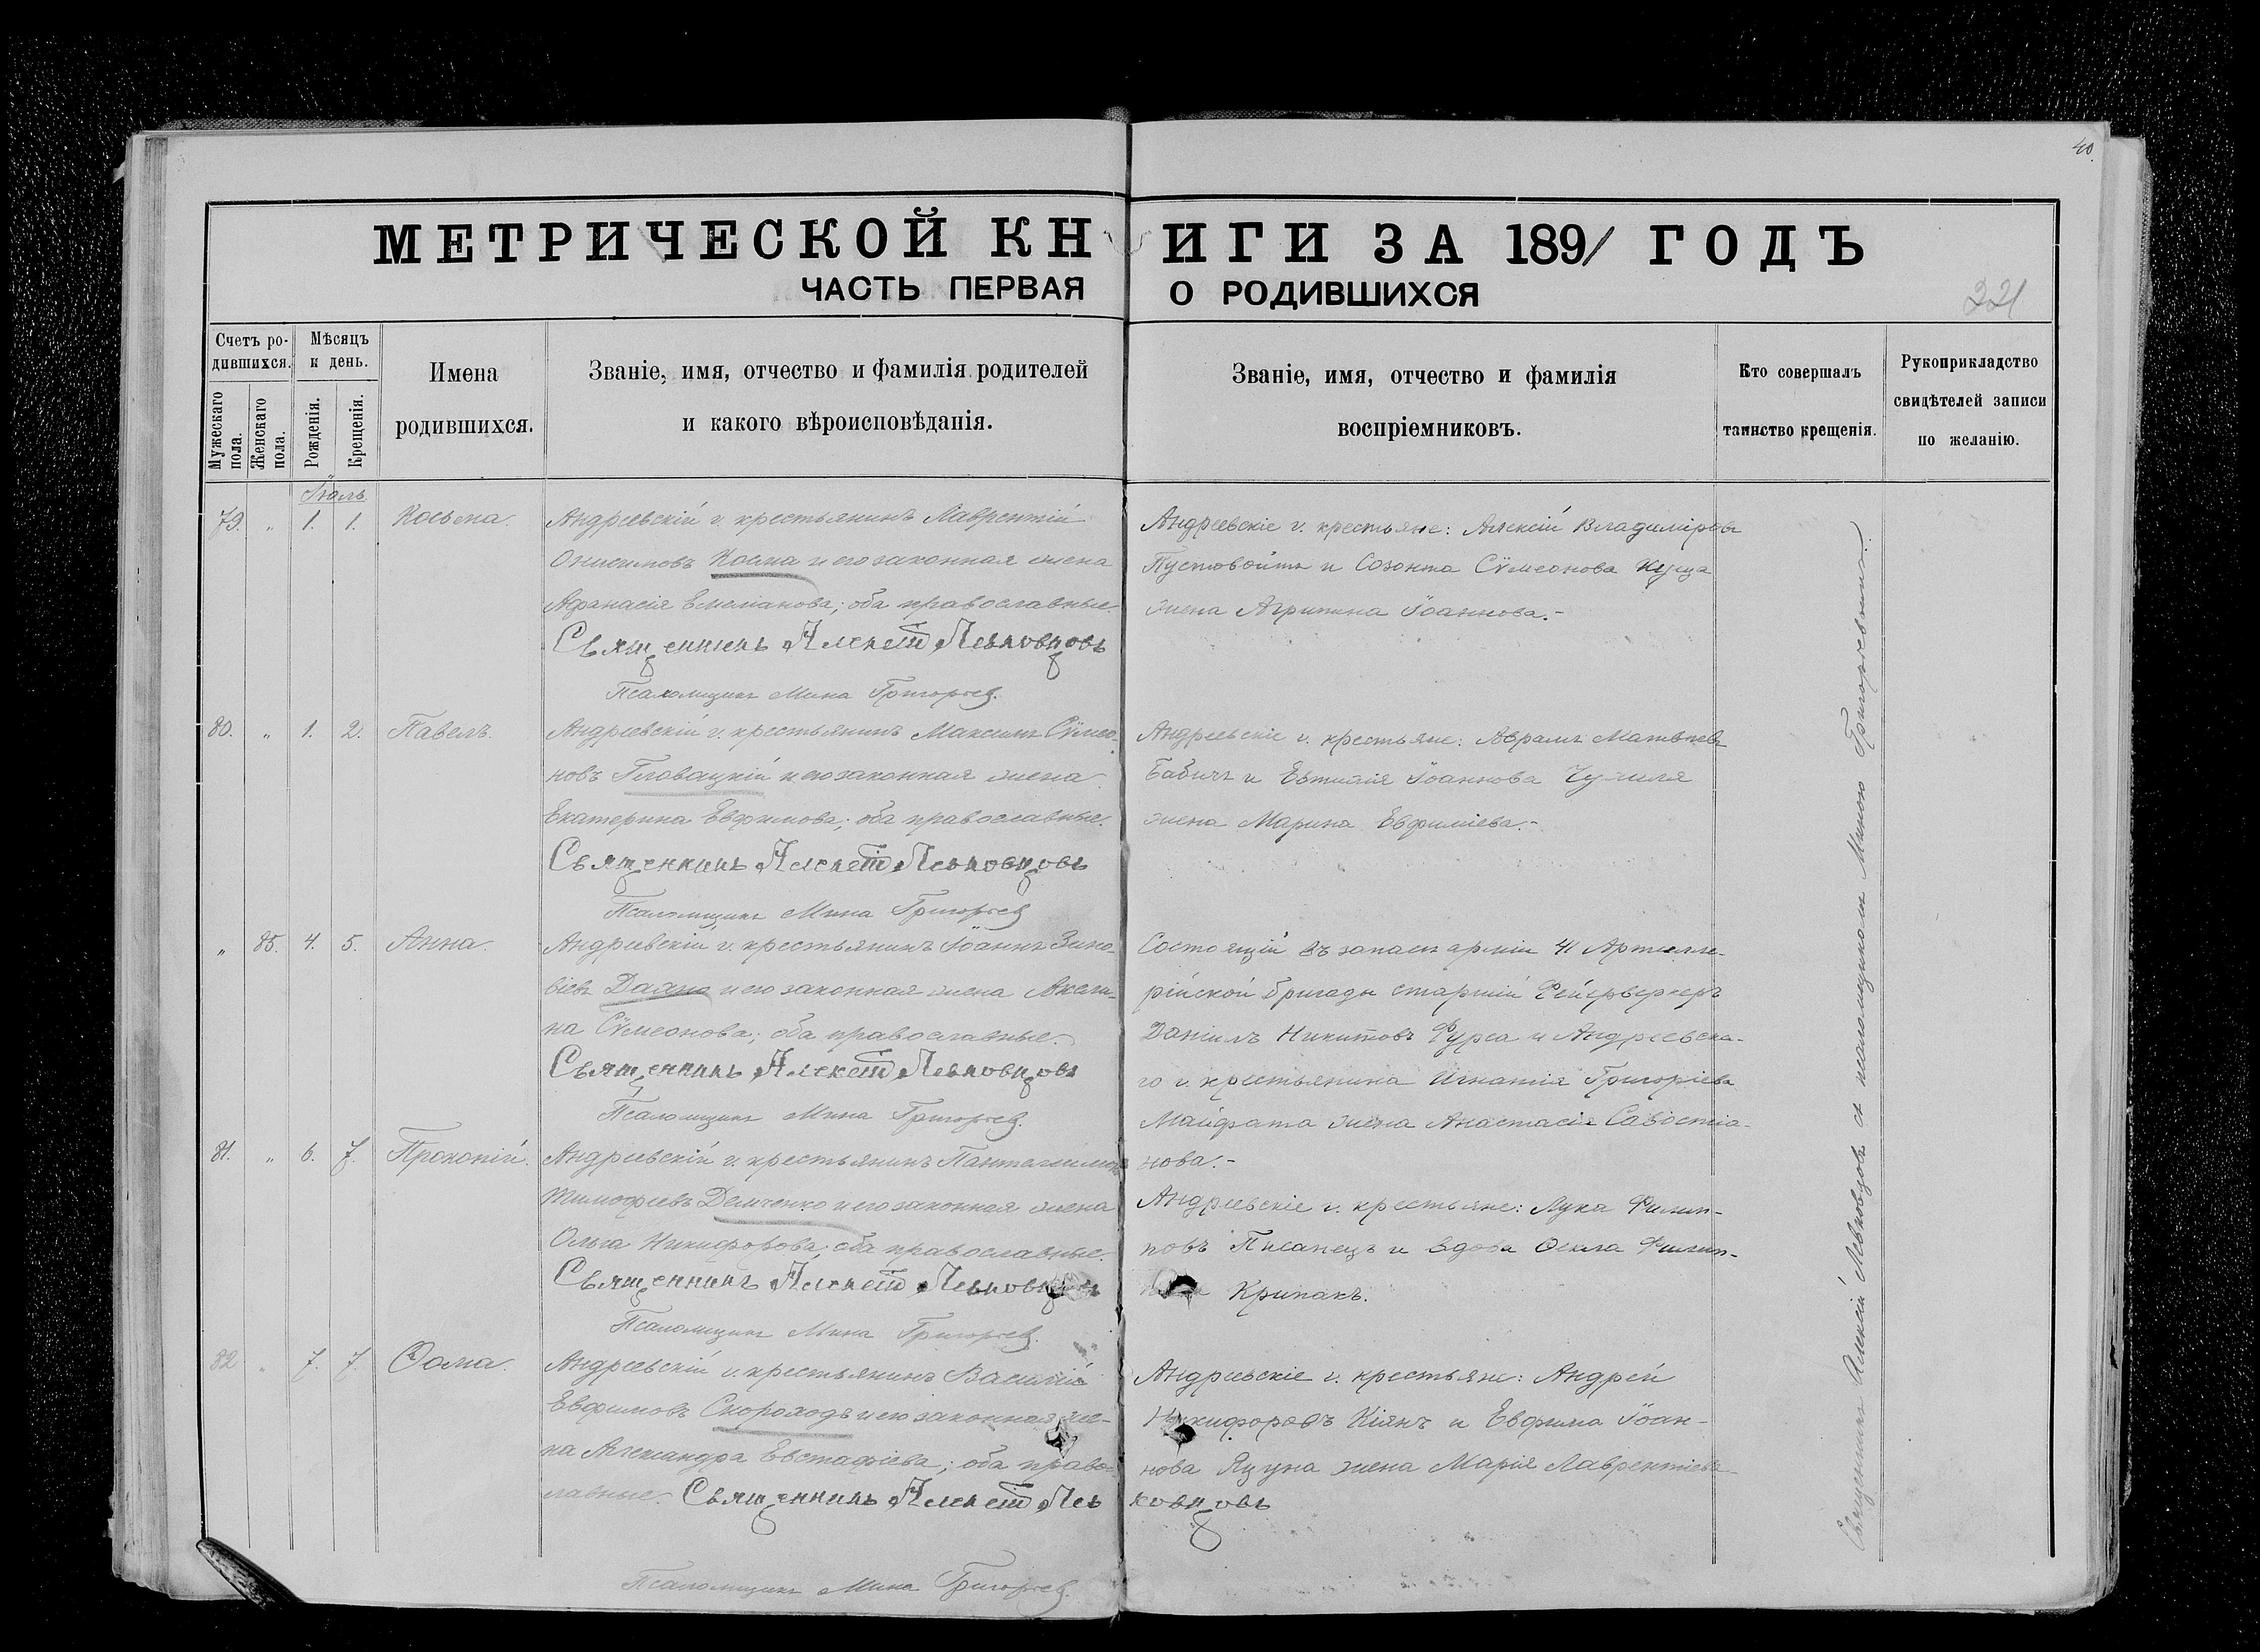 40.
МЕТРИЧЕСКОЙ КНИГИ ЗА 1891 ГОДЪ
ЧАСТЬ ПЕРВАЯ О РОДИВШИХСЯ
221
Счетъ родившихся.
Мужескаго пола.
Женскаго пола.
Мѣсяцъ и день.
Рожденія.
Крещенія.
Имена
родившихся.
Званіе, имя, отчество и фамилія родителей
и какого вѣроисповѣданія.
Званіе, имя, отчество и фамилія
воспріемниковъ.
Кто совершалъ
таинство крещенія.
Рукоприкладство
свидѣтелей записи
по желанію.
Іюль
79. „ 1. 1. Косьма.
Андреевскій г. крестьянинъ Лаврентій
Онисимовъ Косма и его законная жена
Афанасія Емеліанова; оба православные.
Священникъ Алексій Левковцовъ
Псаломщикъ Мина Григорьев.
Андреевскіе г. крестьяне: Алексій Владиміровъ
Пустовойтъ и Созонта Сѵмеонова Куща
жена Агрипина Іоаннова.-
80. „ 1. 2. Павелъ.
Андреевскій г. крестьянинъ Максимъ Сѵмео-
новъ Гловацкій и его законная жена
Екатерина Евфимова; оба православные.
Священникъ Алексій Левковцовъ
Псаломщикъ Мина Григорьев
Андреевскіе г. крестьяне: Аврамъ Матвѣевъ
Бабичъ и Евтихія Іоаннова
жена Марина Евфиміева.-
„ 85. 4. 5. Анна.
Андреевскій г. крестьянинъ Іоаннъ Зино-
віевъ и его законная жена Акили-
на Сѵмеонова; оба православные.
Священникъ Алексій Левковцовъ
Псаломщикъ Мина Григорьев.
Состоящій въ запасѣ арміи 41 Артилле-
рійской бригады старшій Фейерверкеръ
Даніилъ Никитовъ Фурса и Андреевска-
го г. крестьянина Игнатія Григоріева
Майфата жена Анастасія Савостіа-
нова.-
81. „ 6. 7. Прокопій.
Андреевскій г. крестьянинъ Пантелеимонъ
Тимофеевъ Демченко и его законная жена
Ольга Никифорова; оба православные.
Священникъ Алексій Левковцовъ
Псаломщикъ Мина Григорьев.
Андреевскіе г. крестьяне: Лука Филип-
повъ Писанецъ и вдова Фекла Филип-
Крипакъ.
82 „ 7. 7. Ѳома.
Андреевскій г. крестьянинъ Василій
Евфимовъ Скороходъ и его законная же-
на Александра Евстафіева; оба право-
славные. Священникъ Алексій Левковцовъ
Псаломщикъ Мина Григорьев.
Андреевскіе г. крестьяне: Андрей
Никифоровъ Кіянъ и Евфима Іоан-
нова Яцуна жена Марія Лаврентіева
Священникъ Алексій Левковцовъ съ псаломщикомъ Миною Григорьевымъ.